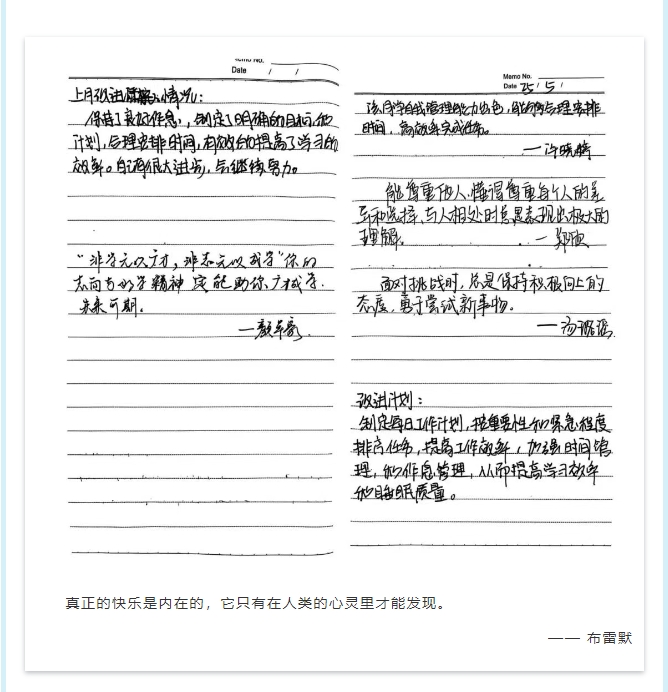 Memo No.
Date / /
上月改进情况：
保持了良好作息，制定了明确的目标和
计划，合理安排时间，有效地提高了学习的
效率。自治有很大进步，会继续努力。
“非学无以广才，非志无以成学”你的
志向与好学精神定能助你广才成学.
未来可期。
Memo No.
Date 25/5/
该月学自我管理能力出色，能够合理安排
时间，高效率完成任务。
—许晓婷
能尊重他人，懂得尊重每个人的差
异和选择，与人相处时总是表现出极大的
理解。 —郑欣
面对挑战时，总是保持积极向上的
态度，勇于尝试新事物。
—汤
改进计划：
制定每日工作计划，按重要性和紧急程度
排序任务，提高工作效率，加强时间管
理，和作息管理，从而提高学习效率
和睡眠质量。
真正的快乐是内在的，它只有在人类的心灵里才能发现。
—— 布雷默